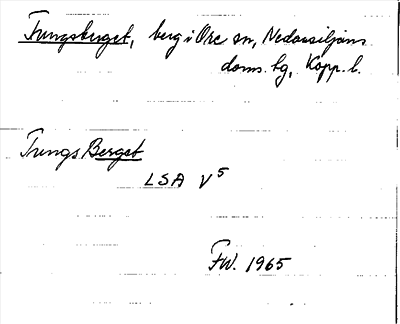 Trungsberget, berg i Ore sn, Nedansiljans
doms. hg, Kopp. l.
Trungs Berget
LSA V5
FW. 1965